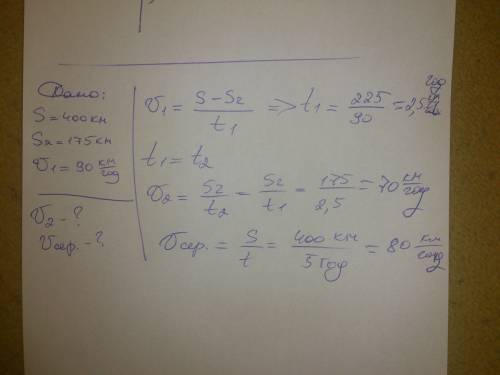 Дано:
S = 400 км
S₂ = 175 км
V₁ = 90 км/год
V₂ - ?
Vсер. - ?
V₁ = (S - S₂)/t₁ => t₁ = 225/90 = 2,5 год
t₁ = t₂
V₂ = S₂/t₂ = S₂/t₁ = 175/2,5 = 70 км/год
Vсер. = S/t = 400 км/5 год = 80 км/год